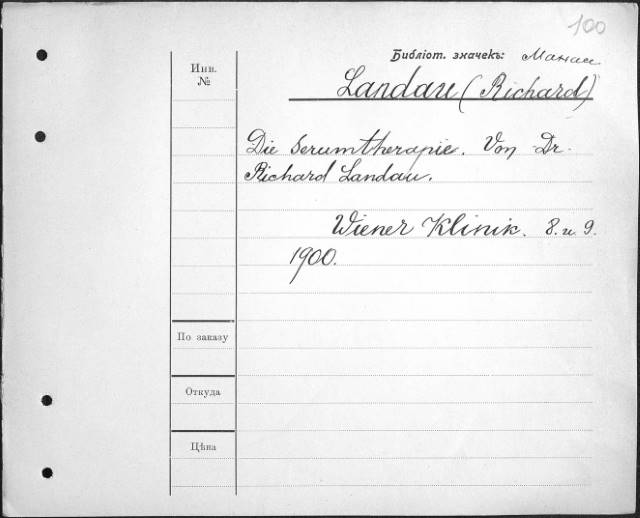 100
Библіот. значекъ:
Инв.
№
Landau (Richard)
Die Serumtherapie. Von Dr.
Richard Landau.
Wiener Klinik. 8. u. 9.
1900.
По заказу
Откуда
Цѣна